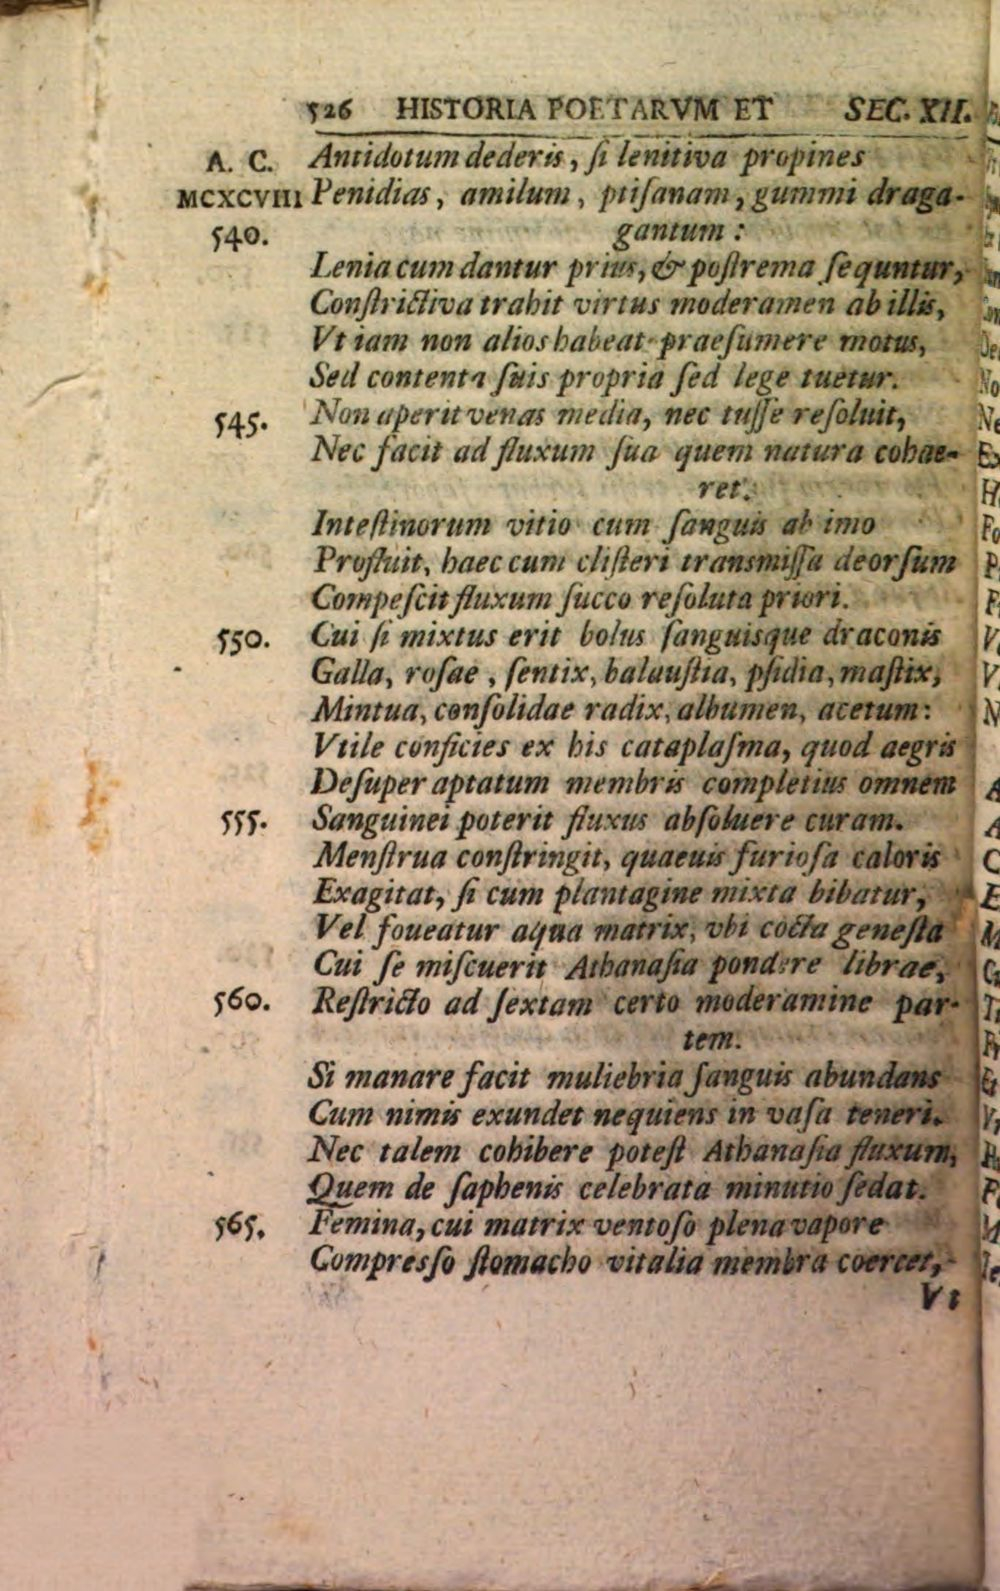 526 HISTORIA POETARVM ET SEC. XII.
A. C. Antidotum dederis, ſi lenitiva propines
MCXCVIII Penidias, amilum, ptiſanam, gummi draga-
540. gantum:
Lenia cum dantur prius, & poſtrema ſequntur,
Conſtrictiva trahit virtus moderamen ab illis,
Vt iam non alios habeat praeſumere motus,
Sed contenta ſuis propria ſed lege tuetur.
545. Non aperit venas media, nec tuſſe reſoluit,
Nec facit ad fluxum ſua quem natura cohae-
ret.
Inteſtinorum vitio cum ſanguis ab imo
Profluit, haec cum cliſteri transmiſſa deorſum
Compeſcit fluxum ſucco reſoluta priori.
550. Cui ſi mixtus erit bolus ſanguisque draconis
Galla, roſae, ſentix, balauſtia, pſidia, maſtix,
Mintua, conſolidae radix, albumen, acetum:
Vtile conficies ex his cataplaſma, quod aegris
Deſuper aptatum membris completius omnem
555. Sanguinei poterit fluxus abſoluere curam.
Menſtrua conſtringit, quaeuis furioſa caloris
Exagitat, ſi cum plantagine mixta bibatur,
Vel foueatur aqua matrix, vbi cocta geneſta
Cui ſe miſcuerit Athanaſia pondere librae,
560. Reſtricto ad ſextam certo moderamine par-
tem.
Si manare facit muliebria ſanguis abundans
Cum nimis exundet nequiens in vaſa teneri.
Nec talem cohibere poteſt Athanaſia fluxum,
Quem de ſaphenis celebrata minutio ſedat.
565. Femina, cui matrix ventoſo plena vapore
Compreſſo ſtomacho vitalia membra coercet,
Vt